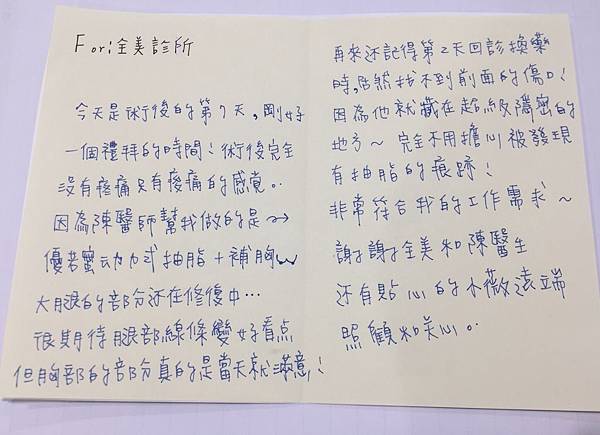 For:全美診所
今天是術後的第7天，剛好
一個禮拜的時間！術後完全
沒有疼痛只有痠痛的感覺。
因為陳醫師幫我做的是~→
優若蜜动力式抽脂+補胸
大腿的部分还在修復中…
很期待腿部線條變好看点
但胸部的部分真的是當天就滿意！
再來还記得第2天回診換藥
時,居然找不到前面的傷口！
因為他就藏在超級隱密的
地方~完全不用擔心被發現
有抽脂的痕跡！
非常符合我的工作需求~
謝謝全美和陳醫生
还有貼心的小薇遠端
照顧和关心。